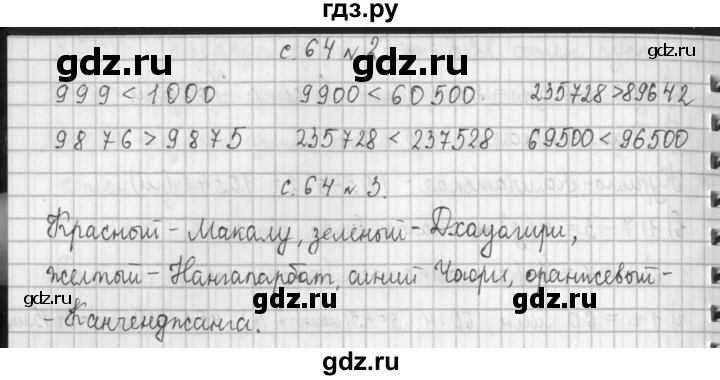 гдз.ру
с. 64 № 2
gdz.ru gdz.ru
999 < 1000 9900 < 60500 235728 > 89642
gdz.ru
9876 > 9875 235728 < 237528 69500 < 96500
gdz.ru
с. 64 № 3.
Красный - Макалу, зелёный - Дхаулагири,
желтый - Нангапарбат, синий Чогори, оранжевый -
gdz.ru gdz.ru
- Канченджанга.
gdz.ru